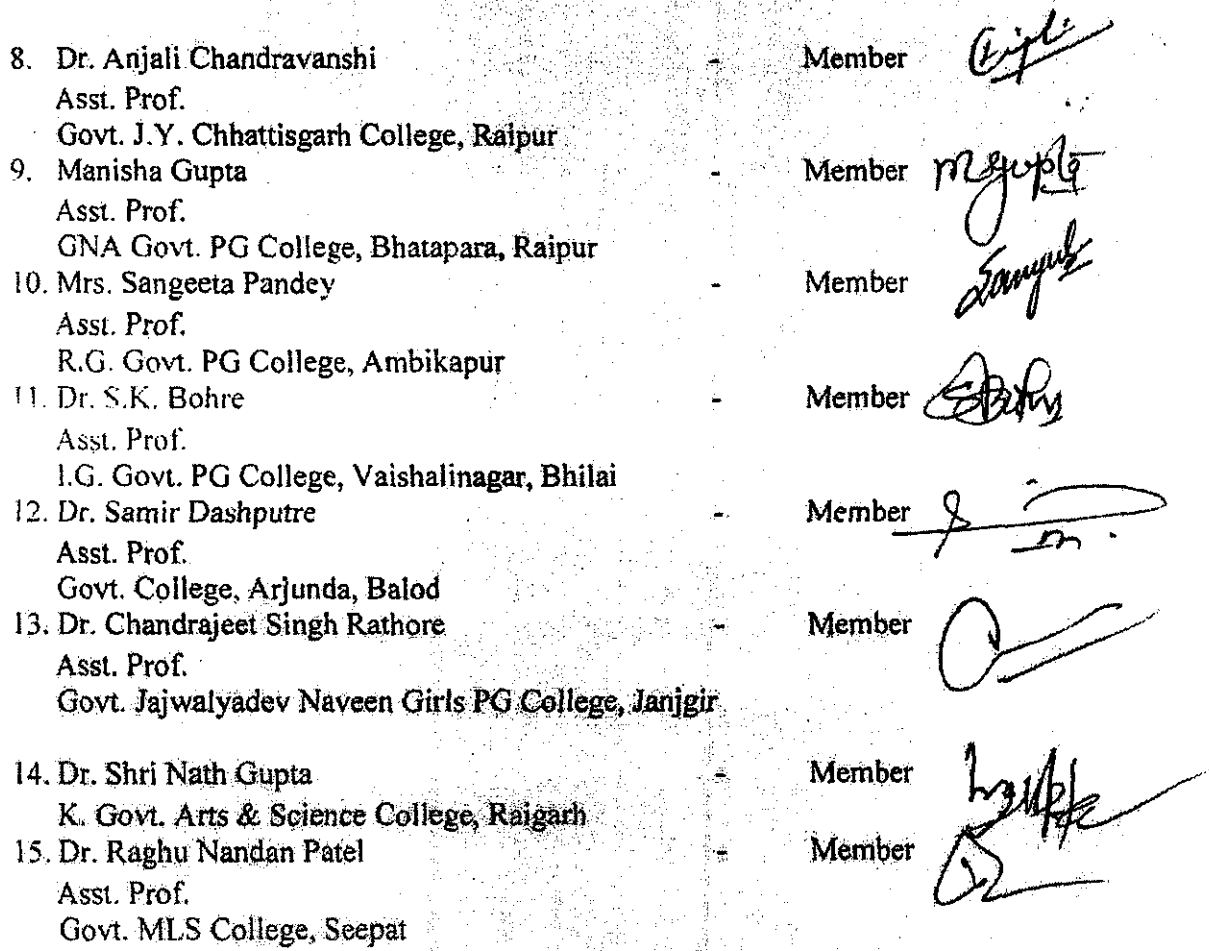 8. Dr. Anjali Chandravanshi - Member
Asst. Prof.
Govt. J.Y. Chhattisgarh College, Raipur
9. Manisha Gupta - Member MGupta
Asst. Prof.
GNA Govt. PG College, Bhatapara, Raipur
10. Mrs. Sangeeta Pandey - Member
Asst. Prof.
R.G. Govt. PG College, Ambikapur
11. Dr. S.K. Bohre - Member
Asst. Prof.
I.G. Govt. PG College, Vaishalinagar, Bhilai
12. Dr. Samir Dashputre - Member
Asst. Prof.
Govt. College, Arjunda, Balod
13. Dr. Chandrajeet Singh Rathore - Member
Asst. Prof.
Govt. Jajwalyadev Naveen Girls PG College, Janjgir
14. Dr. Shri Nath Gupta - Member
K. Govt. Arts & Science College, Raigarh
15. Dr. Raghu Nandan Patel - Member
Asst. Prof.
Govt. MLS College, Seepat